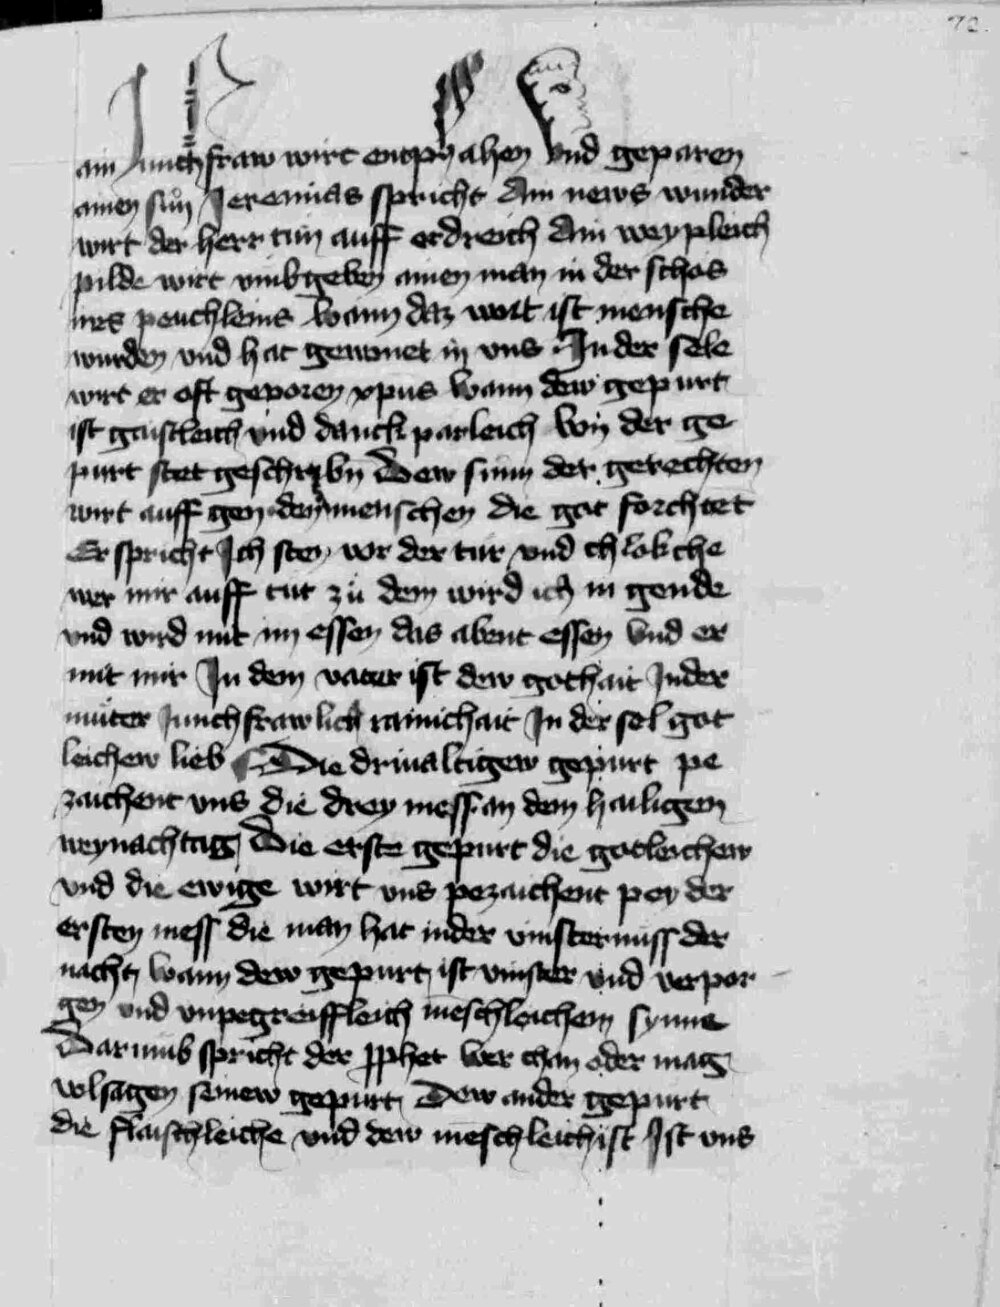 72.
ain Junchfraw wirt entpfahen Und geparen
ainen sůn Jeremias spricht Ain news wunder
wirt der herr tun auff erdreich Ain weypleich
pilde wirt umbgeben ainen man in der schos
irs peuchleins Wann daz wort ist mensche
wurden vnd hat gewonet in vns In der sele
wirt er oft geporen xpūs Wann dew gepurt
ist gaistleich vnd danckparleich Von der ge
purt stet geschrybn Dew sunn der gerechten
wirt auff gen den menschen die got forchtet
Er spricht Ich sten vor der tür vnd chlokche
wer mir auff tut zů dem wird ich in gende
vnd wird mit im essen das abent essen Und er
mit mir In dem vater ist dew gothait In der
můter Junchfrawlich rainichait In der sel got
leichew lieb Die driualtigew gepurt pe
zaichent vns die drey mess an dem hailigen
weynachttag Die erste gepurt die gotleichew
vnd die ewige wirt vns pezaichent pey der
ersten mess die man hat in der vinsternuss der
nacht Wann dew gepurt ist vinster vnd verpor
gen vnd vnpegreiffleich mēschleichem synne
Darumb spricht der pphet Wer chan oder mag
volsagen seinew gepurt Dew ander gepurt
die flaischleiche vnd dew mēschleich ist Ist vns